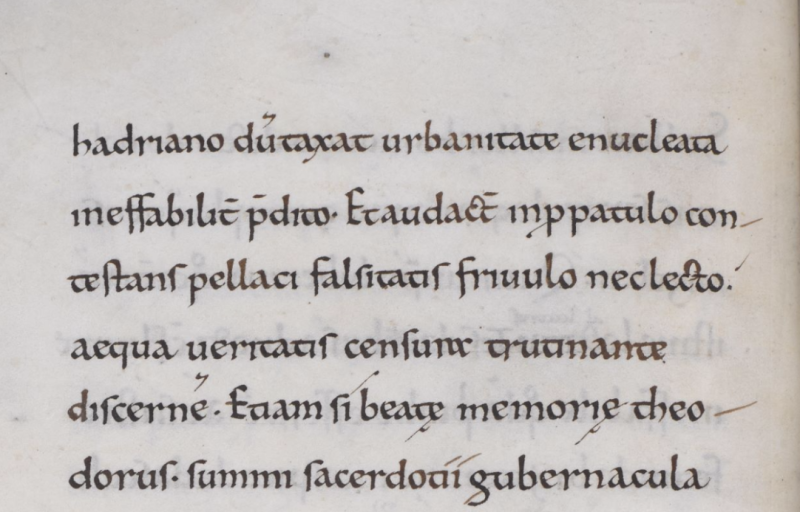 hadriano dūtaxat urbanitate enucleata
ineffabilit̄ p̄dito· Et audact̄ inꝓpatulo con-
testans pellaci falsitatis friuulo neclecto.
aequa ueritatis censurae trutinante
discernē· Etiam si beatę memorię theo-
dorus· summi sacerdotii gubernacula